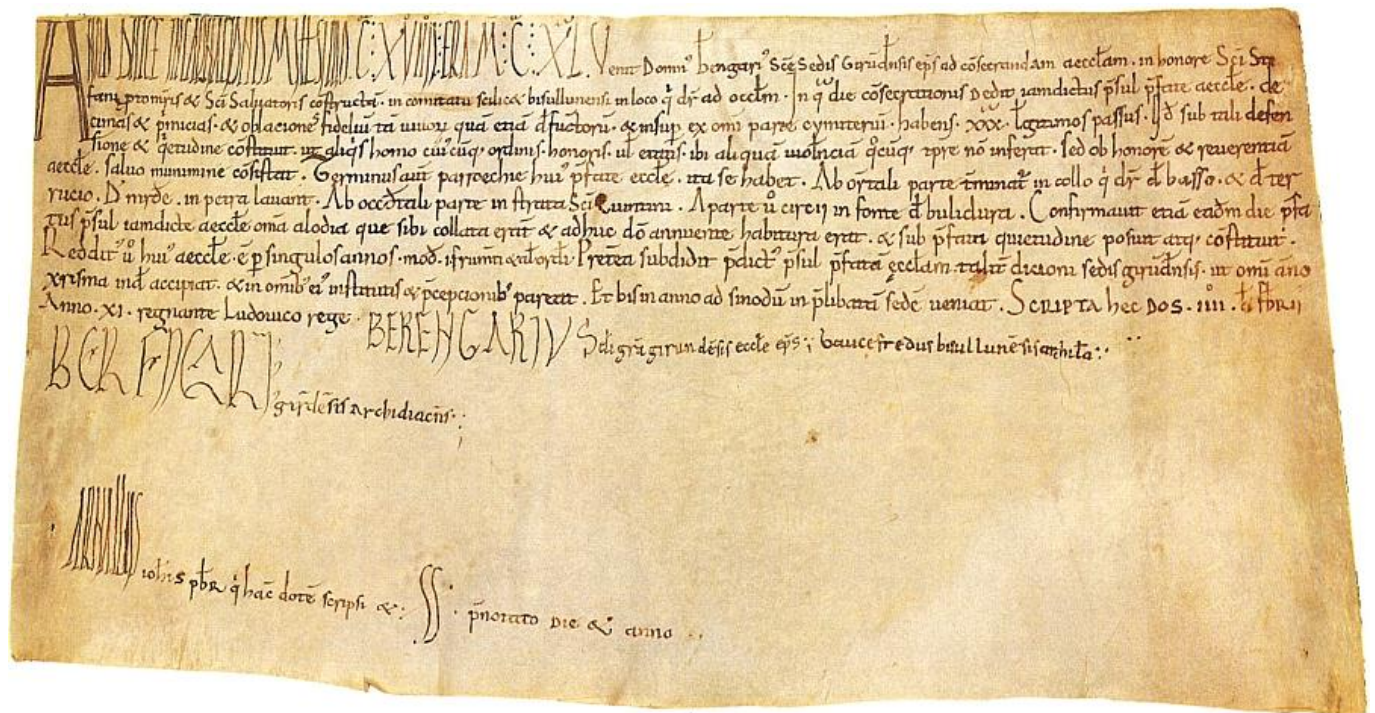 ANNO DNICE INCARNATIONIS MILLESIMO C: XVIIII: ERA M: C: XL: Venit Domn' bengari' Scē Sedis Gerundensis eps ad cōsecrandam aecclam. in honore Sci Ste
fani promris & Sci Salvatoris cōstructā. in comitatu scilicet bisullunensi in loco q̇ dr̄ ad occlm. In q̇ die cōsecrationis Dedit iamdictus p̄sul p̄fate aeccle. de
cimas & p̄micias. & oblaciones fideliū tā vivorū quā etiā d̄functorū. & insup ex omī parte cymiterii. habens. xxx. legitimos passus. Iđ sub tali defen
sione & q̇etudine cōstituit. ut aliq̇s homo cui'cūq; ordinis. honoris. ul' etatis. ibi aliquā violenciā q̇cūq; tpre nō inferat. Sed ob honorē & reverentiā
aeccle. salvo munimine cōsistat. Terminus aut parroechie hui' p̄fate eccle. ita se habet. Ab ortali parte īminat' in collo q̇ dr̄ d̄ basso. & d̄ ter
rucio. D' mrđe. in petra lavant. Ab occđtali parte in strata Sci Quintini. A parte ů circii in fonte d̄ bulidura. Confirmavit etiā eadm die p̄fa
tus p̄sul iamdicte aeccle omā alodia que sibi collata erāt & adhuc dō annuente habitura erat. & sub p̄fati quietudine posuit atq; cōstituit.
Reddit' ů hui' aeccle. ē p singulos annos. mod. ifrumti & ordi. Pretea subdidit p̄dict' p̄sul p̄fatā ecclam. talit dicioni sedis girundensis. ut omī āno
xrisma inđ accipiat. & in omib' ei' institutis & p̄cepcionib' pareat. Et bis in anno ad sinodū in p̄libatā sedē veniat. SCRIPTA hec DOS. IIII. kl fbrii
Anno. XI. regnante Ludovico rege.
BERENGARIVS di grā girundēsis eccle eps ; Gaucefredus bisullunēsis archilā:
BERENGARI' girđēsis archidiacn̄s:
ARNALLUS iohīs pbr q̇ hac dotē scripsi &: SS. p̄notato Die & anno